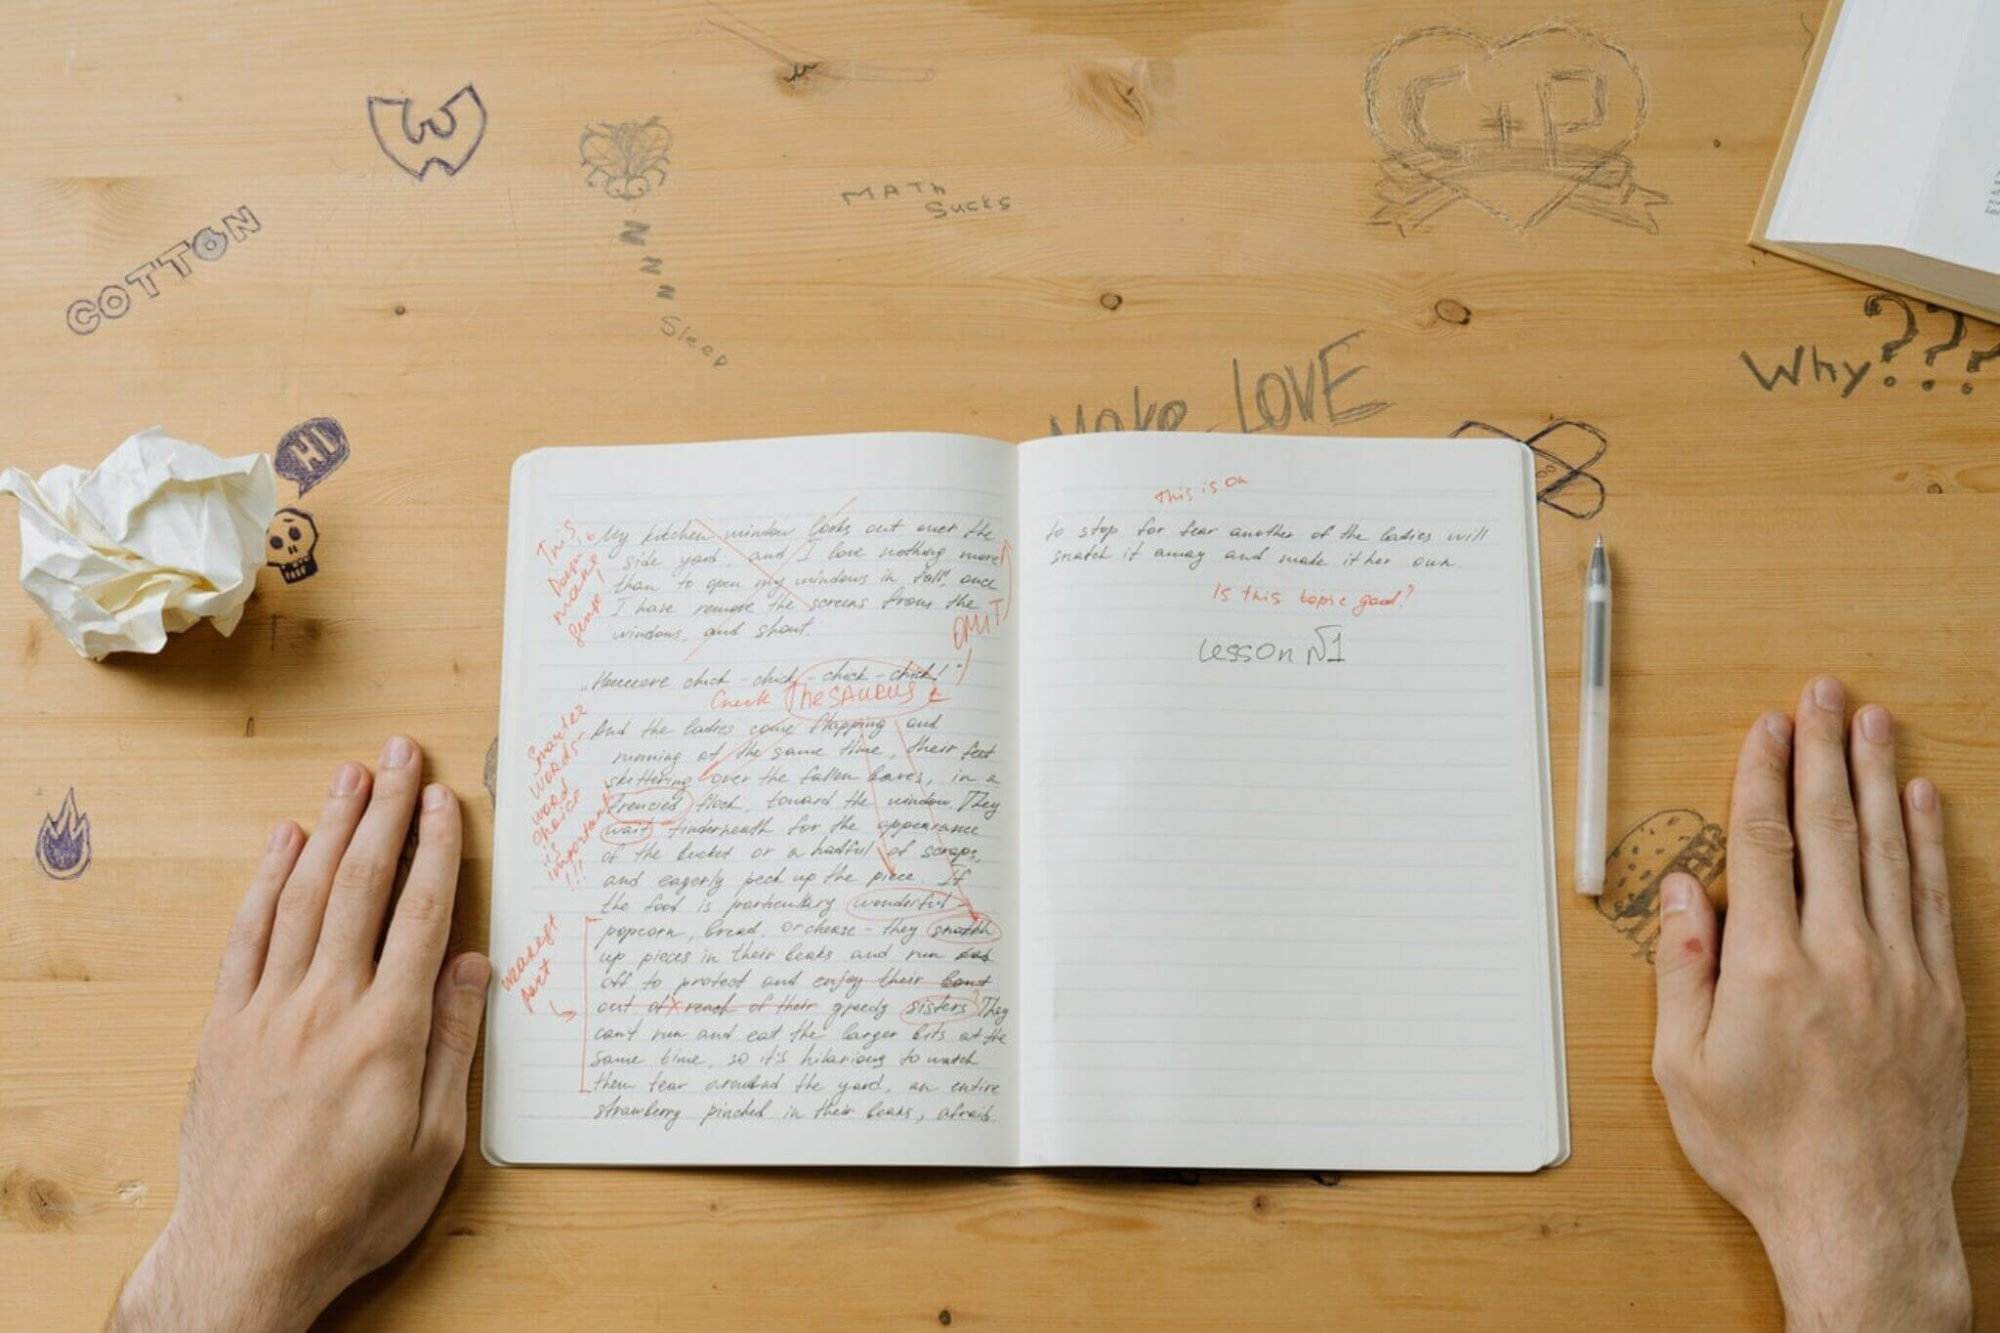 W
COTTON
MATH
Sucks
C+P
N
N
N
N
Sleep
Make LOVE
Why???
HI
This
Doesn't
make
sense!
My kitchen window looks out over the
side yard, and I love nothing more
than to open my windows in fall, once
I have remove the screens from the
windows, and shout.
OMIT
chick - chick - chick - chick!"
Check Thesaurus
Smarter
words-
word
choice
is
important
!!!
And the ladies come flapping and
running at the same time, their feet
skettering over the fallen leaves, in a
frencied flock, toward the window. They
wait underneath for the appearance
of the bucket or a hadful of scraps,
and eagerly peck up the piece. If
the food is particulary wonderful -
weakest
part
popcorn, bread, or cheese - they snatch
up pieces in their beaks and run
off to protect and enjoy their
out of reach of their greedy sisters? They
can't run and eat the larger bits at the
same time, so it's hilarious to watch
them tear around the yard, an entire
strawberry pinched in their beaks, afraid
This is ok
to stop for fear another of the ladies will
snatch it away and make it her own.
Is this topic good?
Lesson №1